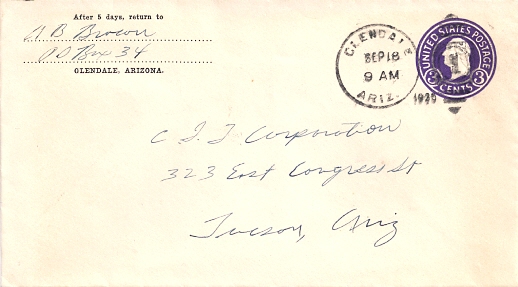 After 5 days, return to
A B Brown
P O Box 34
GLENDALE, ARIZONA.
GLENDALE
SEP 18
9 AM
ARIZ.
1939
UNITED STATES POSTAGE
3 CENTS 3
C I T Corporation
323 East Congress St
Tucson, Ariz